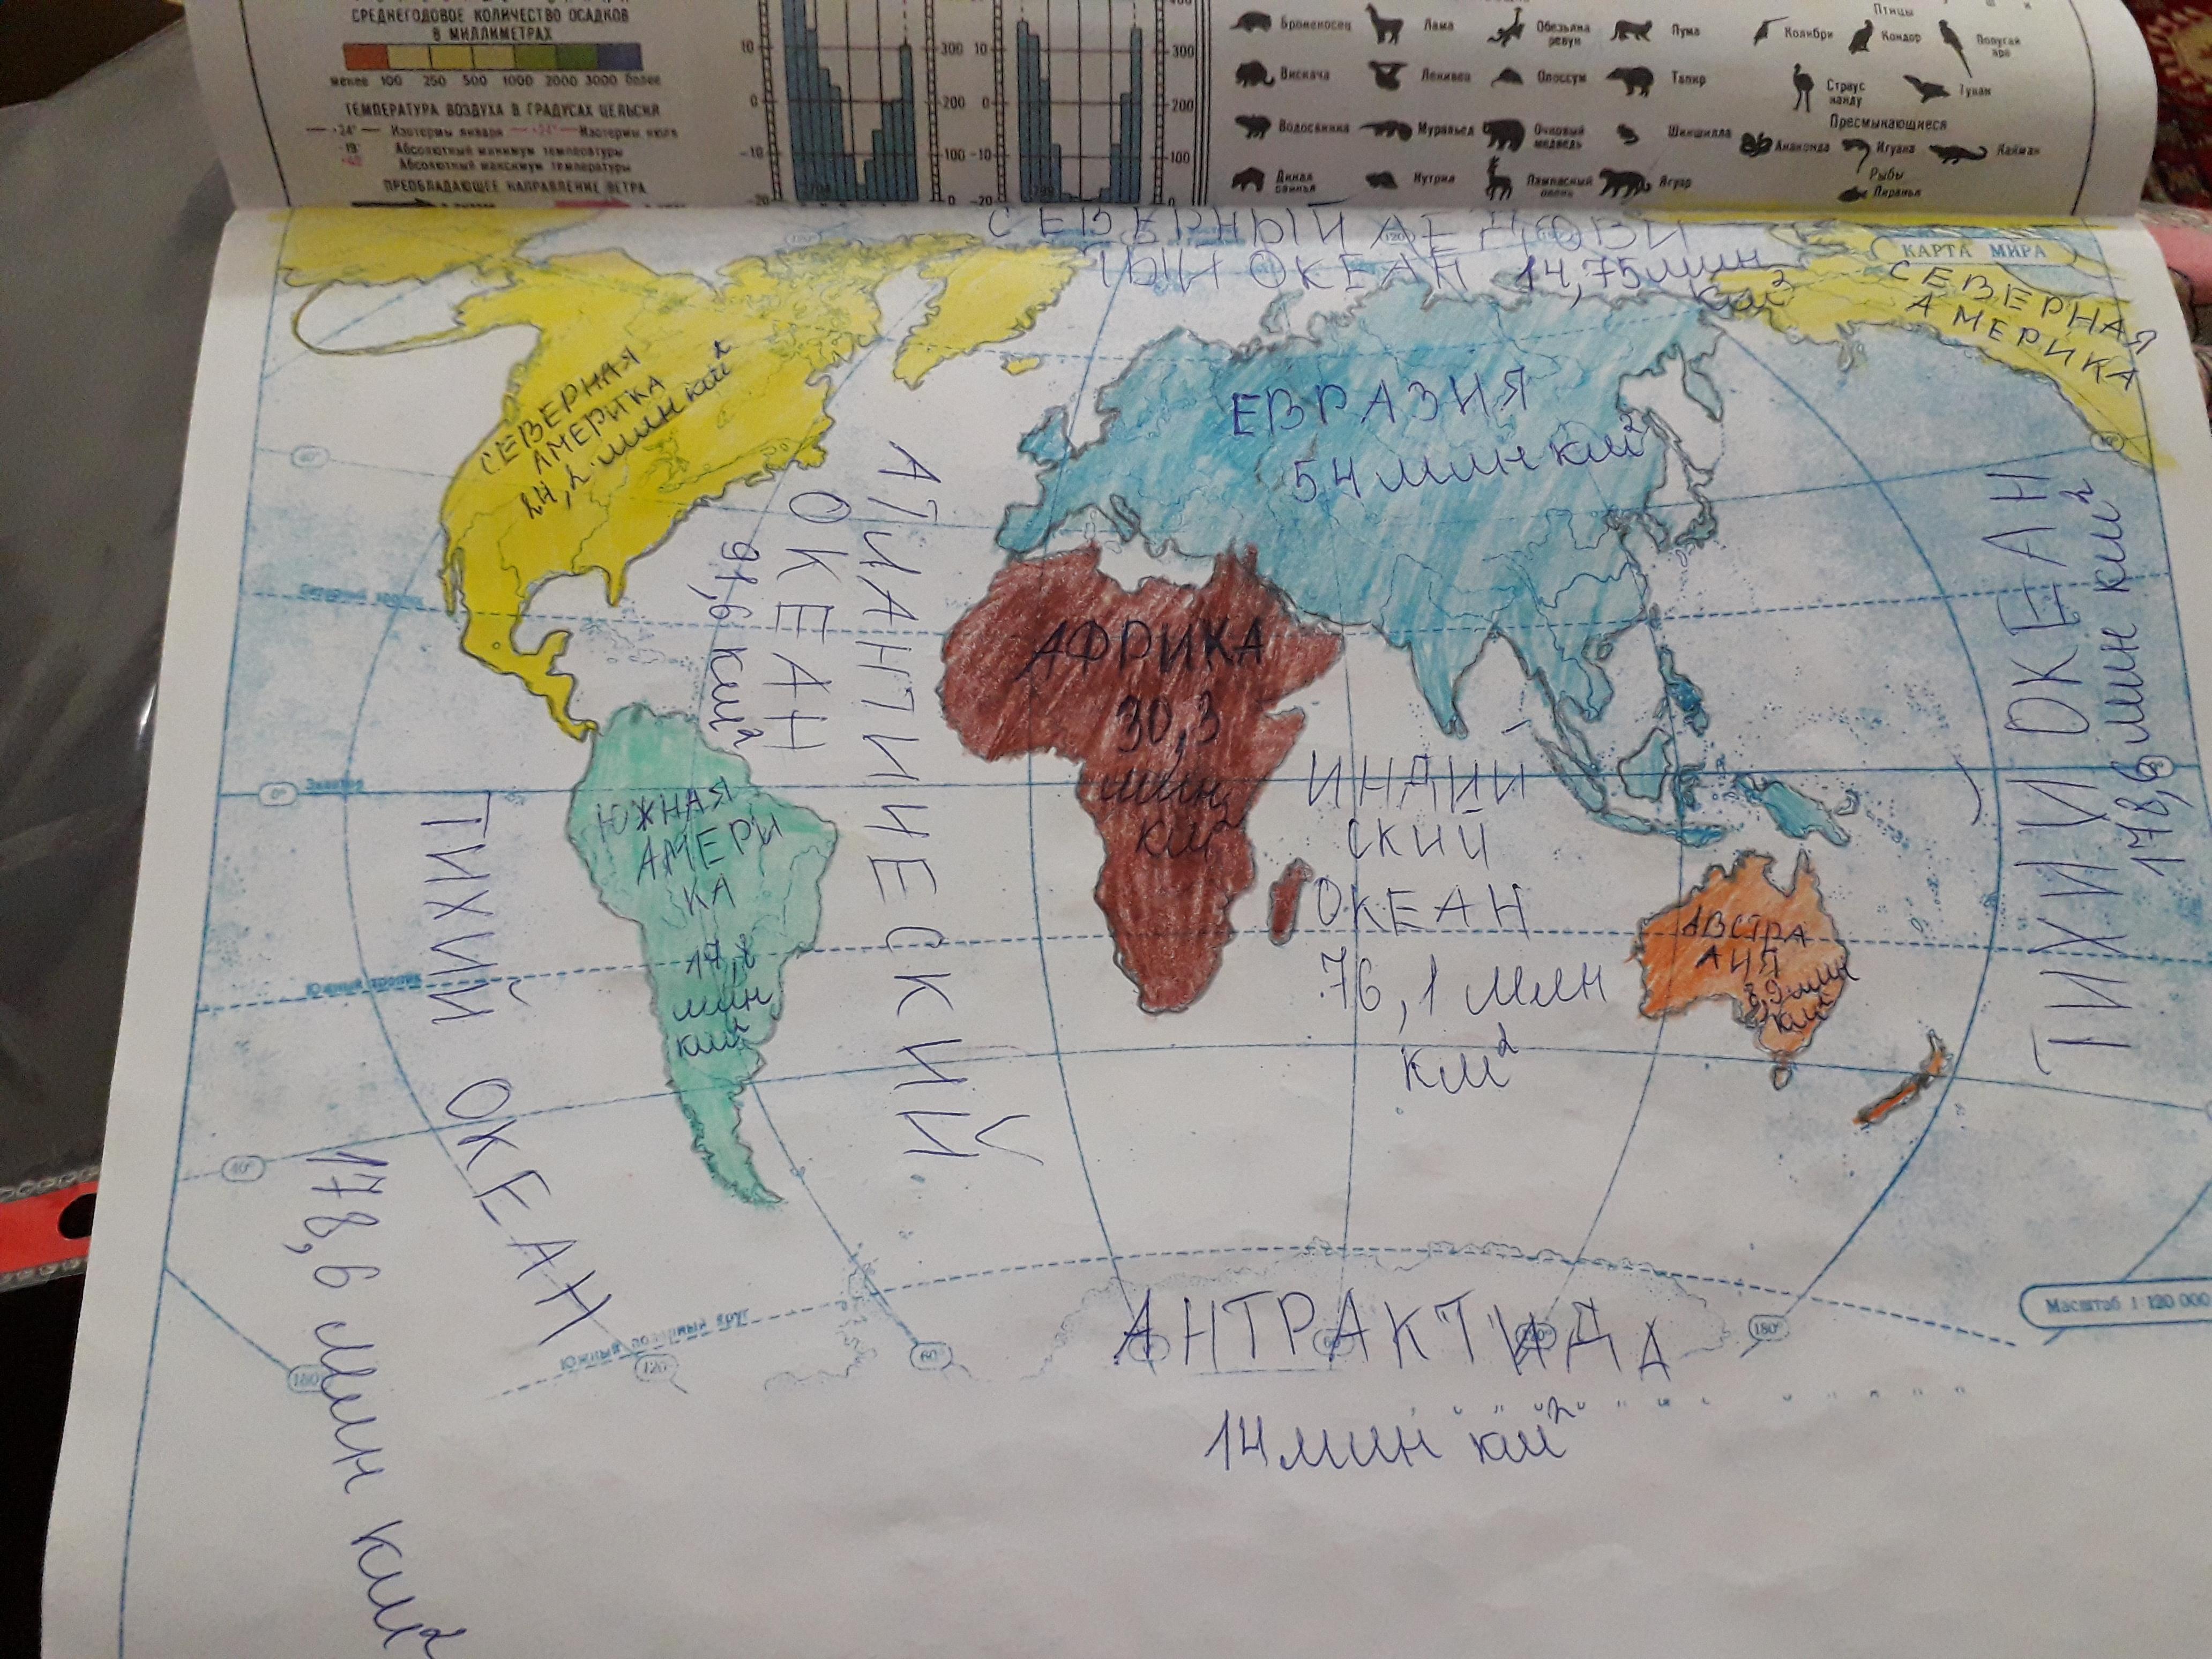 СРЕДНЕГОДОВОЕ КОЛИЧЕСТВО ОСАДКОВ
В МИЛЛИМЕТРАХ
менее 100 250 500 1000 2000 3000 более
ТЕМПЕРАТУРА ВОЗДУХА В ГРАДУСАХ ЦЕЛЬСИЯ
+24° Изотермы января +24° Изотермы июля
Абсолютный минимум температуры
Абсолютный максимум температуры
ПРЕОБЛАДАЮЩЕЕ НАПРАВЛЕНИЕ ВЕТРА
10 300 10 300
0 200 0 200
-10 100 -10 100
-20 0 -20 0
Птицы
Броненосец Лама Обезьяна ревун Пума Колибри Кондор Попугай ара
Вискача Ленивец Опоссум Тапир Страус нанду Тукан
Пресмыкающиеся
Водосвинка Муравьед Очковый медведь Шиншилла Анаконда Игуана Кайман
Рыбы
Дикая свинья Нутрия Пампасный олень Ягуар Пиранья
КАРТА МИРА
СЕВЕРНЫЙ ЛЕДОВИ
ТЫЙ ОКЕАН 14,75 млн
км²
СЕВЕРНАЯ
АМЕРИКА
СЕВЕРНАЯ
АМЕРИКА
24,2 млн км²
ЕВРАЗИЯ
54 млн км²
АТЛАНТИЧЕСКИЙ
ОКЕАН
91,6 км²
ТИХИЙ ОКЕАН
178,6 млн км²
АФРИКА
30,3
млн
км²
ЮЖНАЯ
АМЕРИ
КА
17,8
млн
км²
ИНДИЙ
СКИЙ
ОКЕАН
76,1 млн
км²
АВСТРА
ЛИЯ
8,9 млн
км²
ТИХИЙ ОКЕАН
178,6 млн км²
40°
Северный тропик
0°
Экватор
Южный тропик
40°
Южный полярный круг
180°
120°
60°
180°
Масштаб 1:120 000
АНТРАКТИДА
14 млн км²